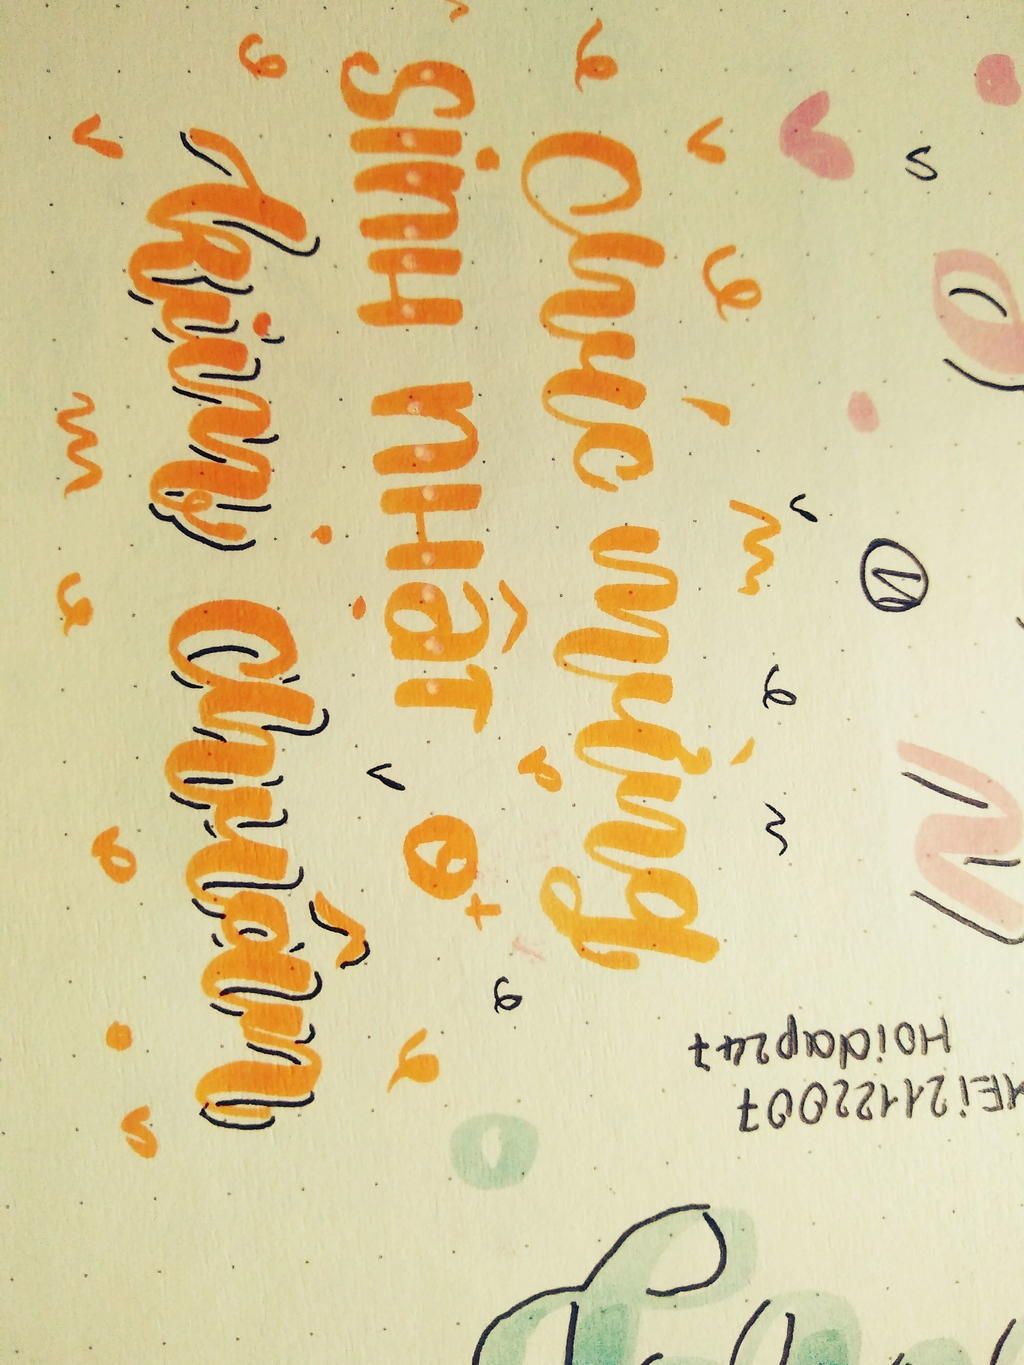 Chúc mừng
sinh nhật
Chuân
MEi21122007
Hoidap247